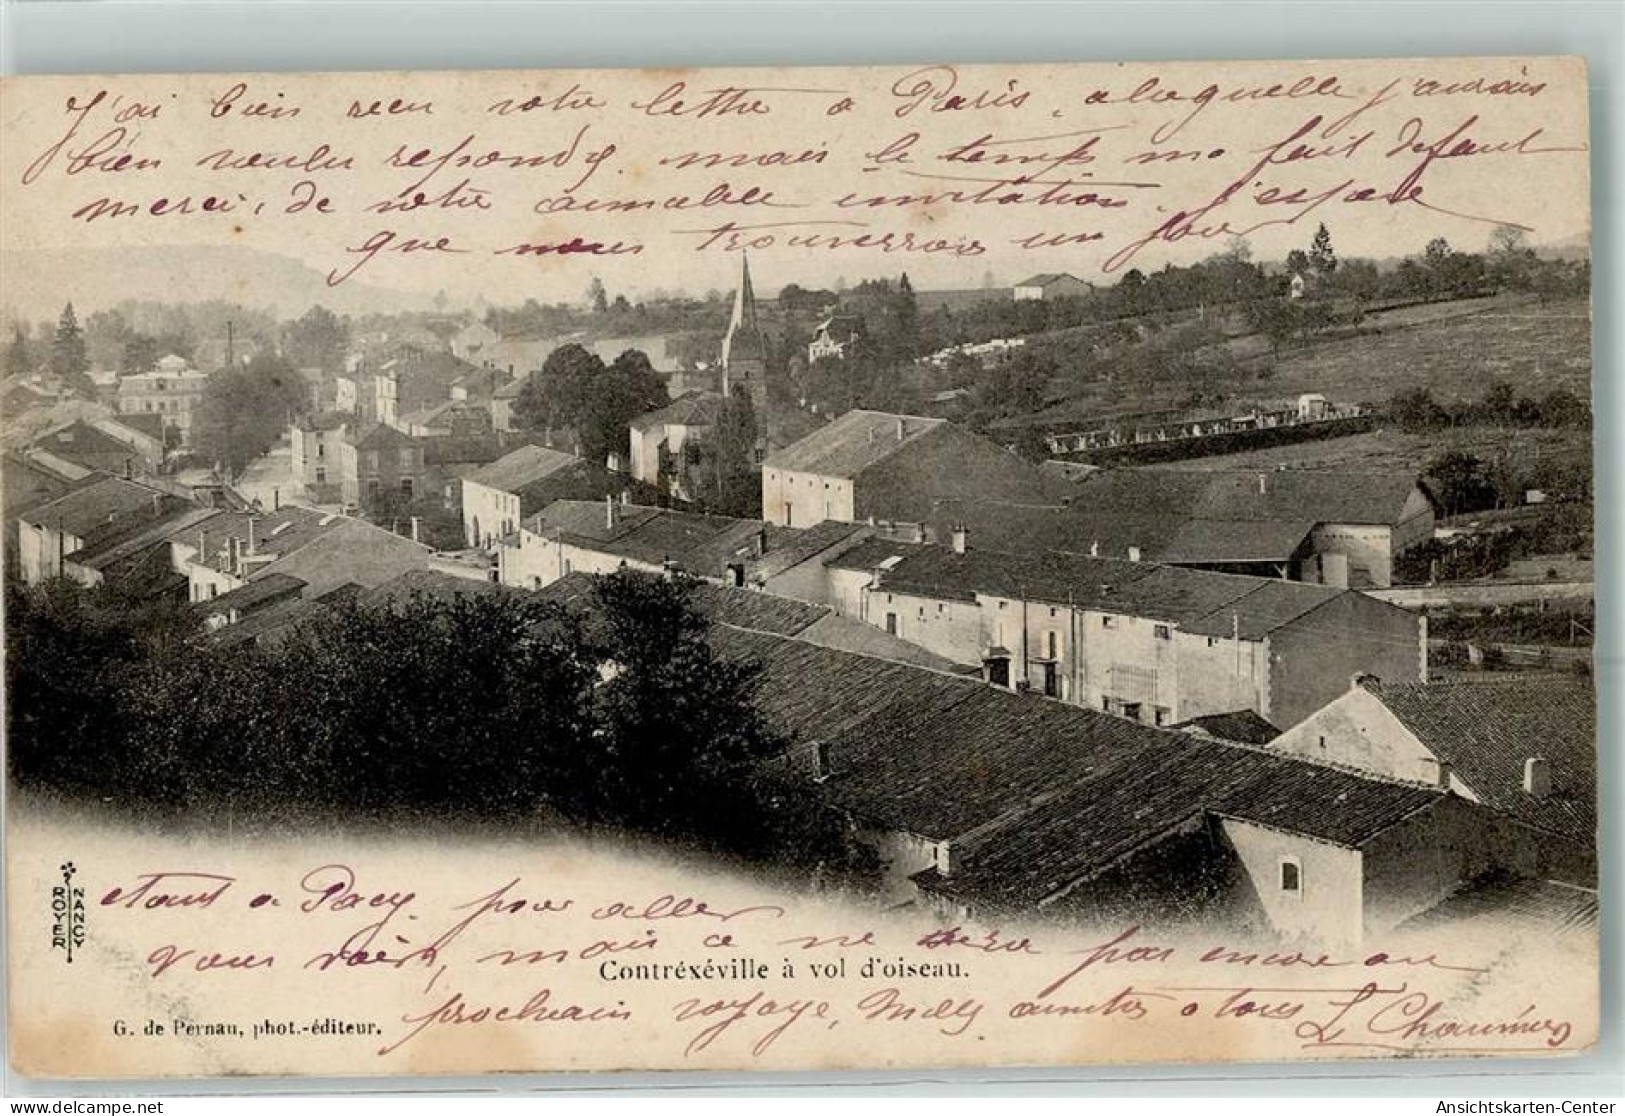 J'ai bien recu votre lettre a Paris, a laquelle j'aurais
bien voulu repondre, mais le temps me fait defaut
merci, de votre aimable invitation, j'espere
que nous trouverrons un jour
etant a Pagy, pour aller
vous voir, mais ce ne sera pas encore au
prochain voyage, Mill amities a tous L Chaumier
Contréxéville à vol d'oiseau.
G. de Pernau, phot.-éditeur.
ROYER
NANCY
Ansichtskarten-Center